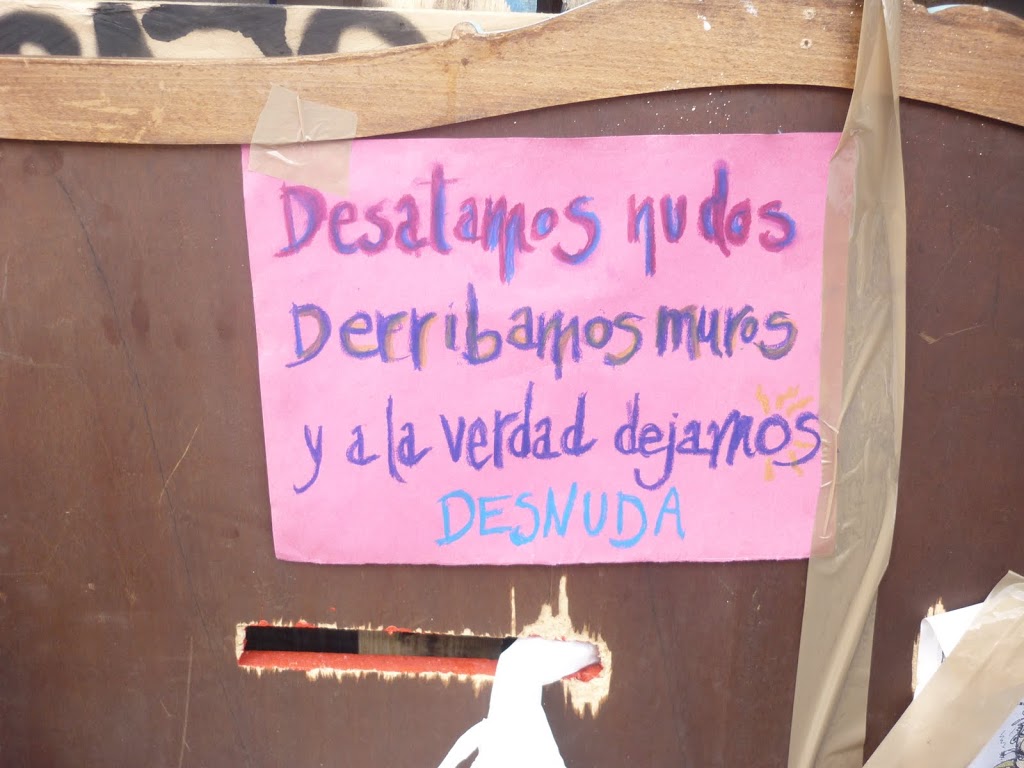 Desatamos nudos
Derribamos muros
y a la verdad dejamos
DESNUDA